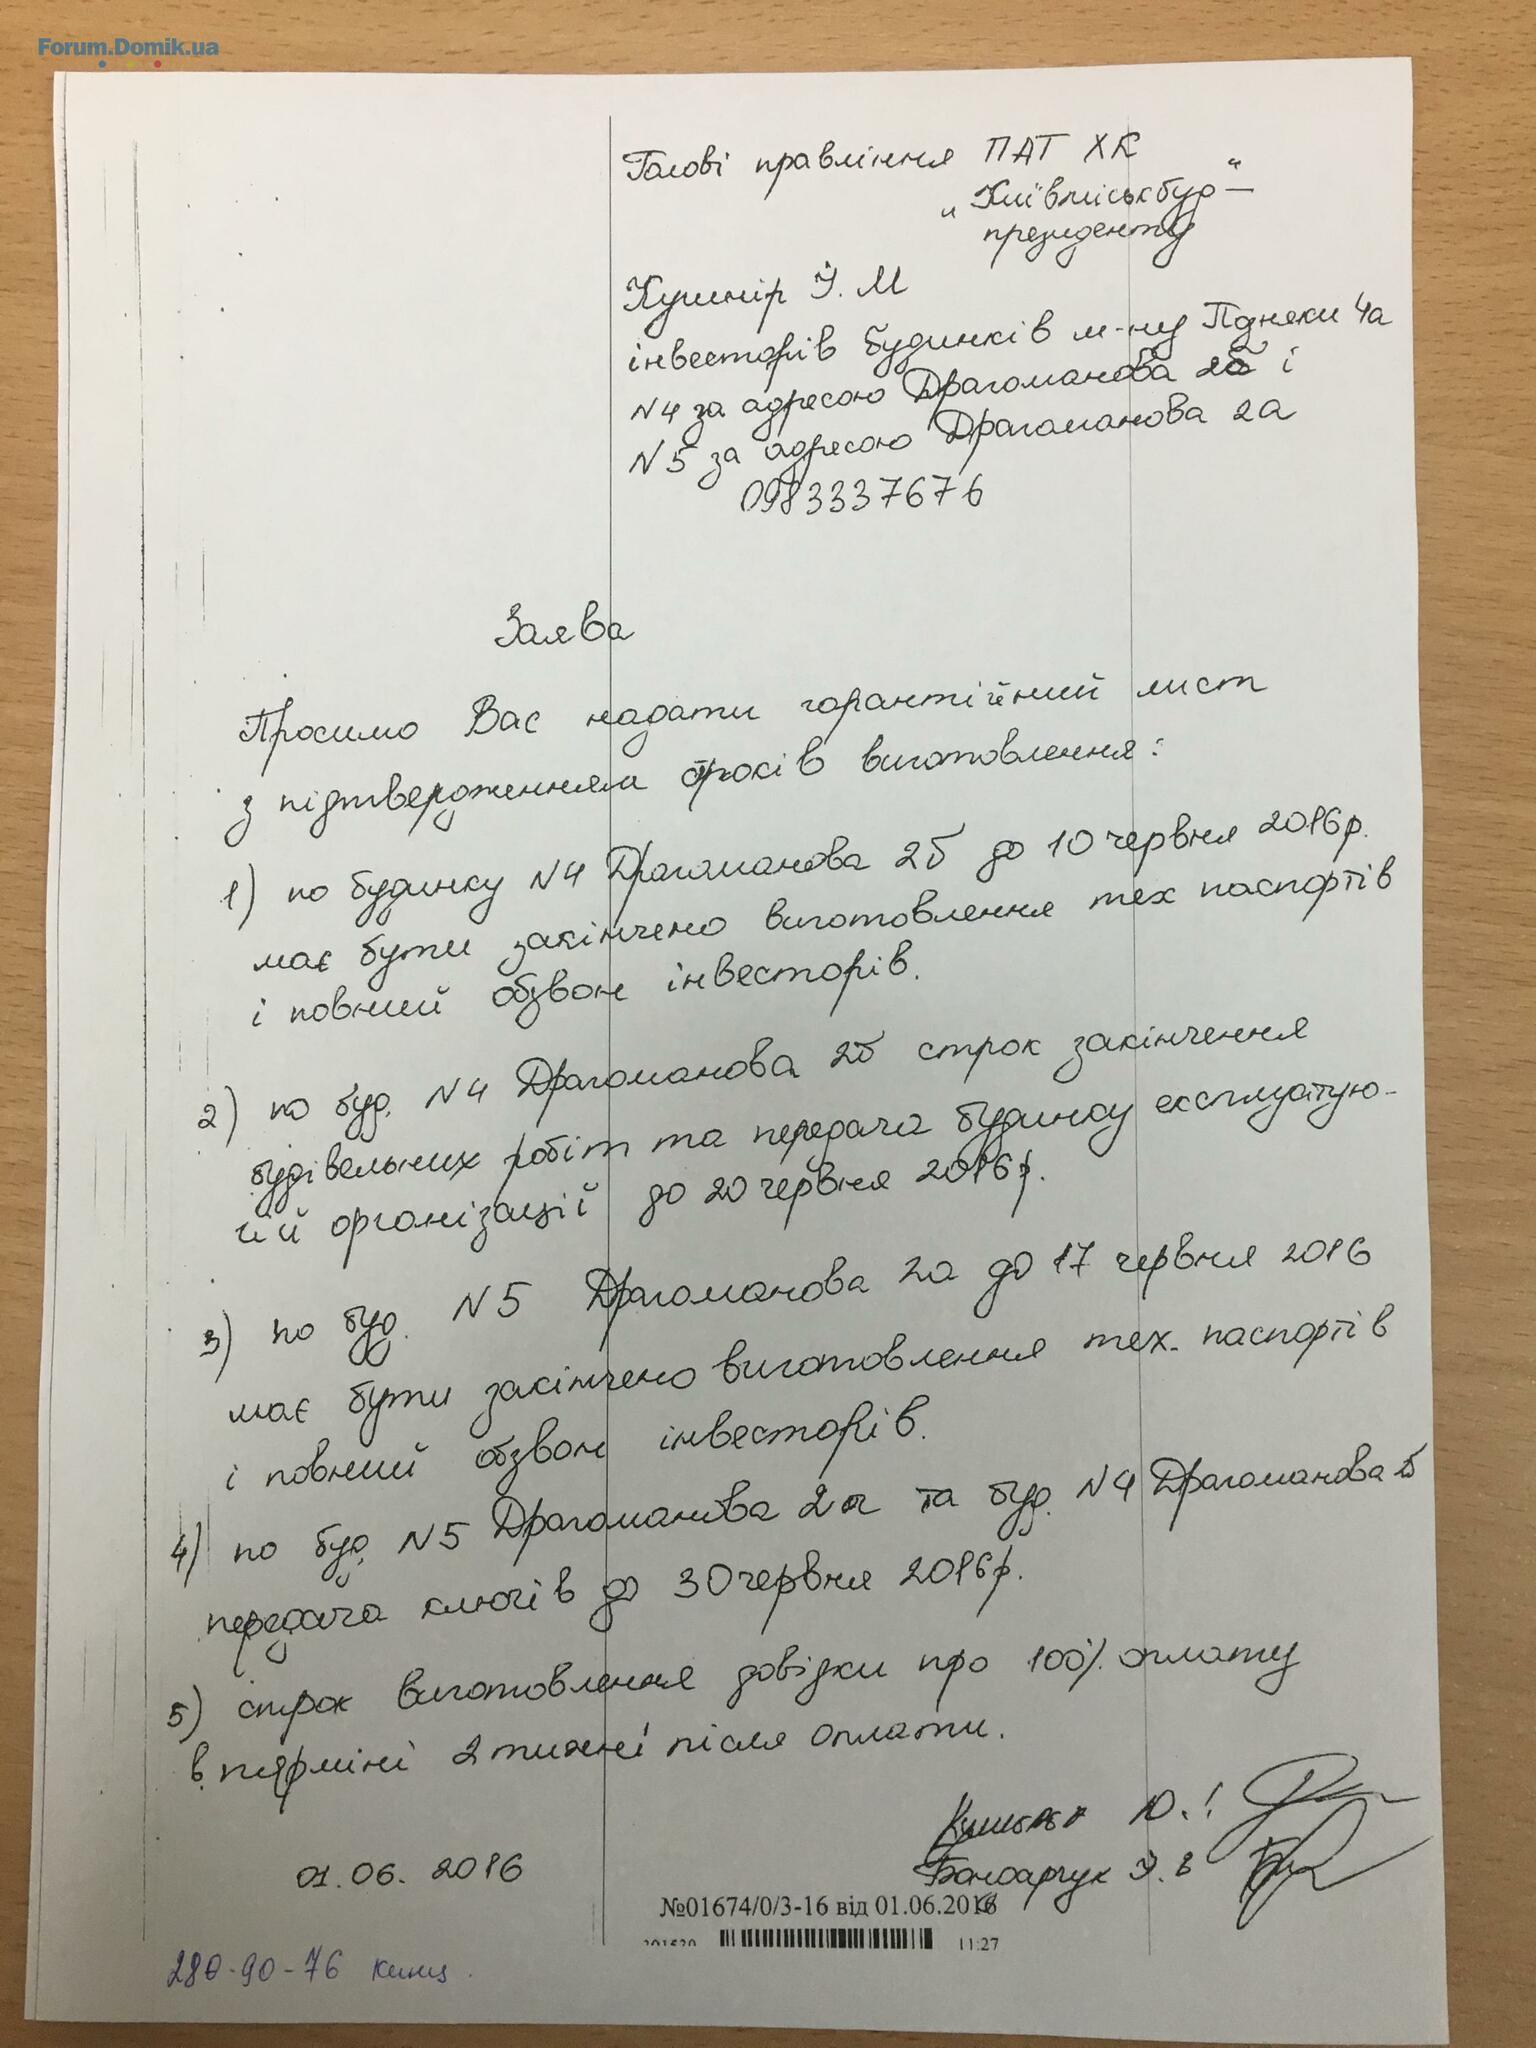 Forum.Domik.ua
Голові правління ПАТ ХК
"Київміськбуд" -
президенту
Кушнір І. М
інвесторів будинків м-ну Позняки 4а
№4 за адресою Драгоманова 2б і
№5 за адресою Драгоманова 2а
0983337676
Заява
Просимо Вас надати гарантійний лист
з підтвердженням строків виготовлення:
1) по будинку №4 Драгоманова 2б до 10 червня 2016р.
має бути закінчено виготовлення тех паспортів
і повний обзвон інвесторів.
2) по буд. №4 Драгоманова 2б строк закінчення
будівельних робіт та передача будинку експлуатую-
чій організації до 20 червня 2016р.
3) по буд. №5 Драгоманова 2а до 17 червня 2016
має бути закінчено виготовлення тех. паспортів
і повний обзвон інвесторів.
4) по буд. №5 Драгоманова 2а та буд. №4 Драгоманова 2б
передача ключів до 30 червня 2016р.
5) строк виготовлення довідки про 100% оплату
в терміні 2 тижні після оплати.
Ю.
Бондарчук
01.06.2016
№01674/0/3-16 від 01.06.2016
11:27
280-90-76